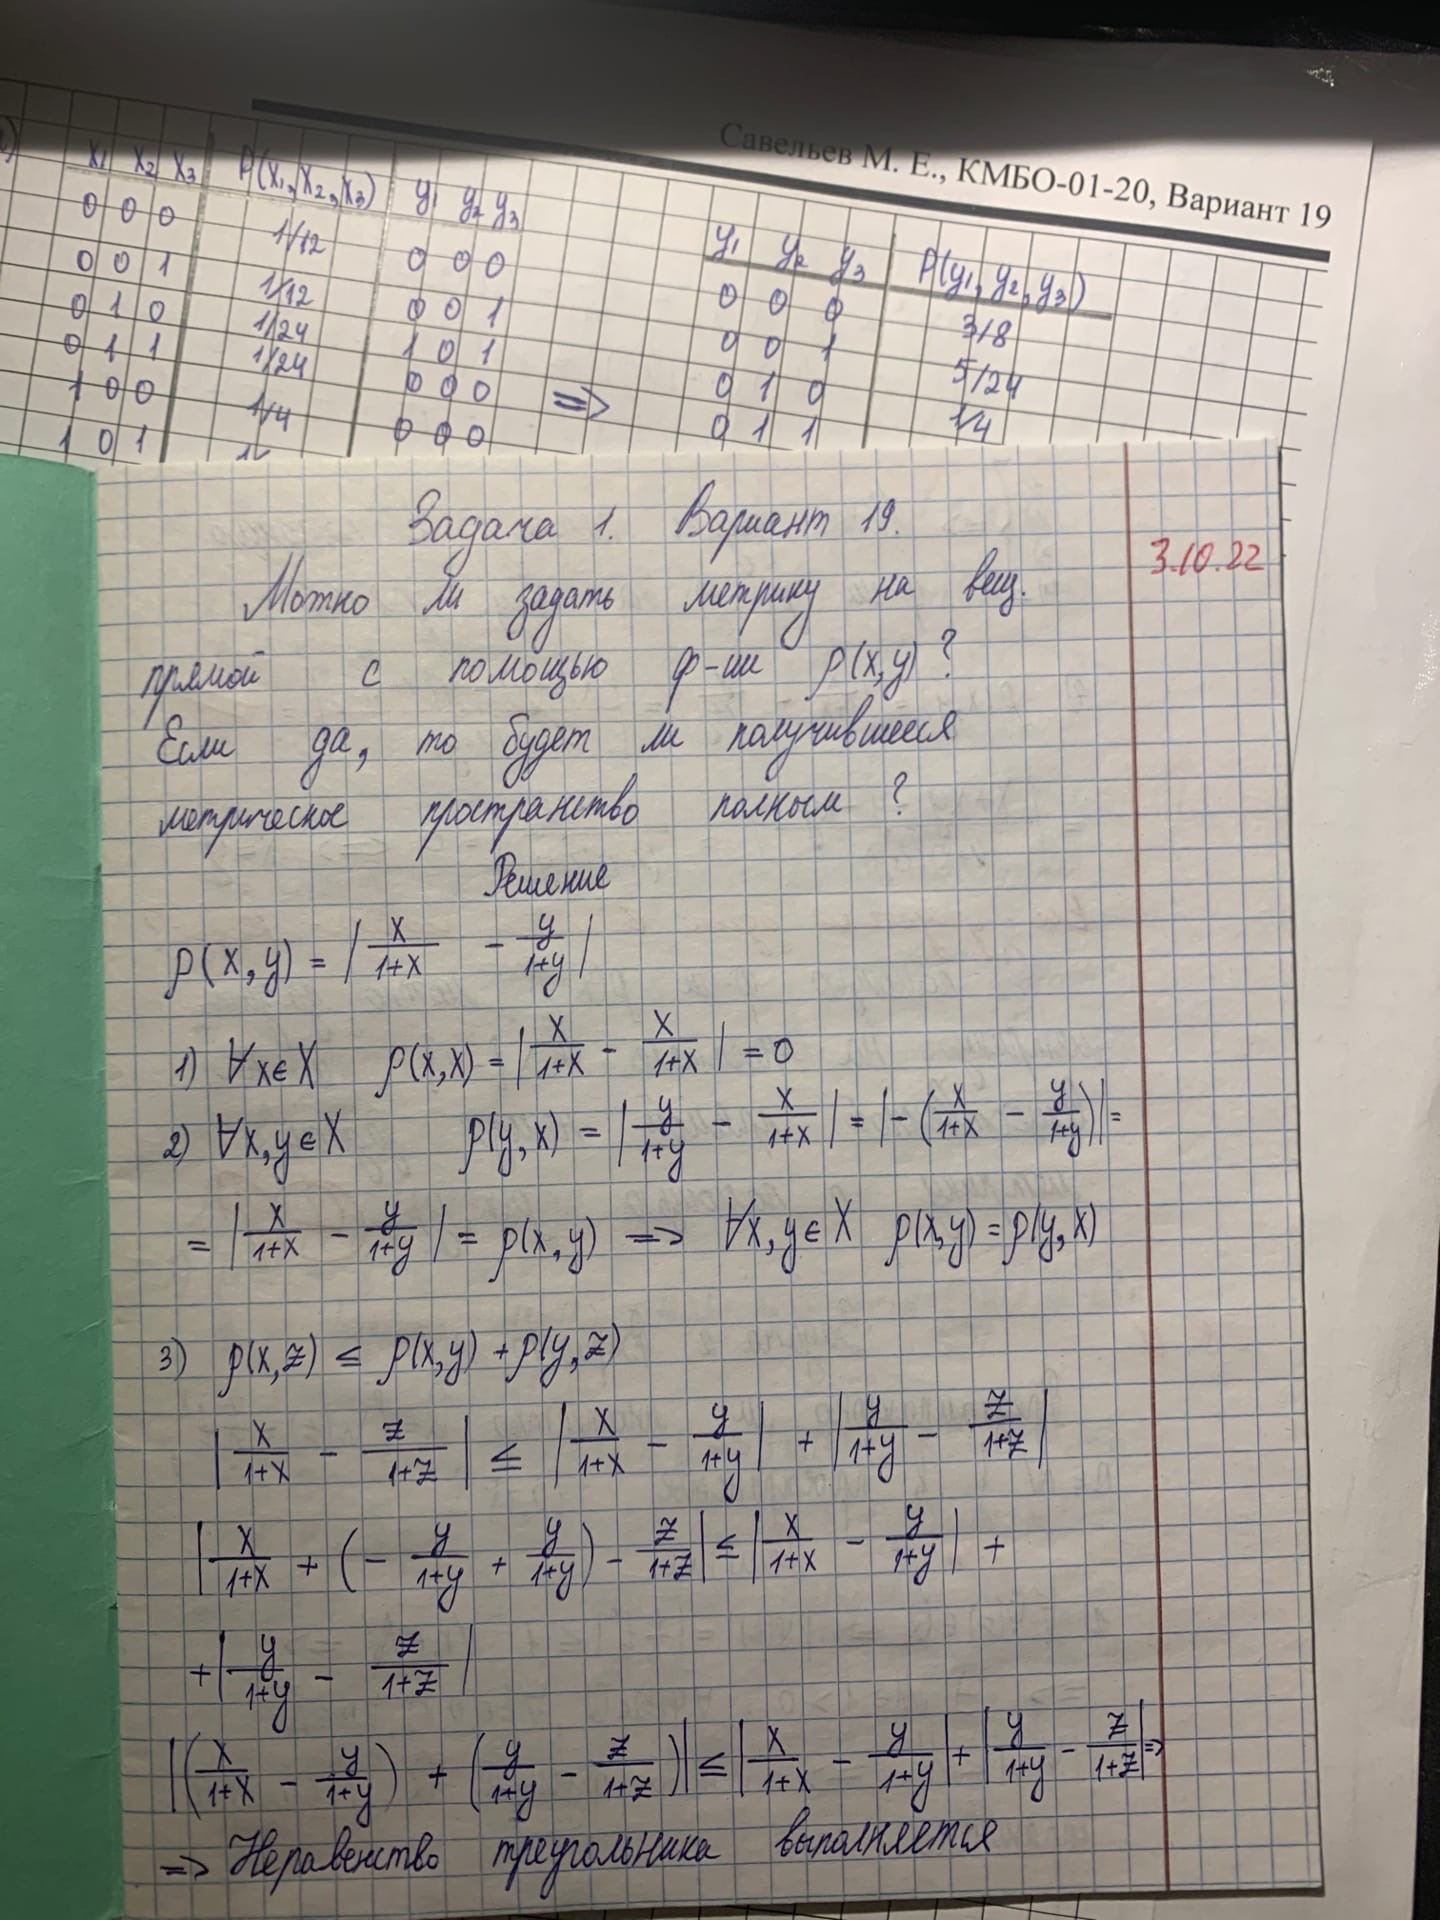 Савельев М. Е., КМБО-01-20, Вариант 19
x₁ x₂ x₃ P(x₁, x₂, x₃) y₁ y₂ y₃
0 0 0 1/12 0 0 0
0 0 1 1/12 0 0 1
0 1 0 1/24 1 0 1
0 1 1 1/24 0 0 0
1 0 0 1/4 0 0 0
1 0 1
=>
y₁ y₂ y₃ P(y₁, y₂, y₃)
0 0 0 3/8
0 0 1 5/24
0 1 0 1/4
0 1 1
3.10.22
Задача 1. Вариант 19.
Можно ли задать метрику на вещ.
прямой с помощью ф-ии ρ(x,y)?
Если да, то будет ли получившееся
метрическое пространство полным?
Решение
ρ(x,y) = |x/(1+x) - y/(1+y)|
1) ∀x∈X ρ(x,x) = |x/(1+x) - x/(1+x)| = 0
2) ∀x,y∈X ρ(y,x) = |y/(1+y) - x/(1+x)| = |-(x/(1+x) - y/(1+y))| =
= |x/(1+x) - y/(1+y)| = ρ(x,y) => ∀x,y∈X ρ(x,y) = ρ(y,x)
3) ρ(x,z) ≤ ρ(x,y) + ρ(y,z)
|x/(1+x) - z/(1+z)| ≤ |x/(1+x) - y/(1+y)| + |y/(1+y) - z/(1+z)|
|x/(1+x) + (- y/(1+y) + y/(1+y)) - z/(1+z)| ≤ |x/(1+x) - y/(1+y)| +
+ |y/(1+y) - z/(1+z)|
|(x/(1+x) - y/(1+y)) + (y/(1+y) - z/(1+z))| ≤ |x/(1+x) - y/(1+y)| + |y/(1+y) - z/(1+z)| =>
=> Неравенство треугольника выполняется